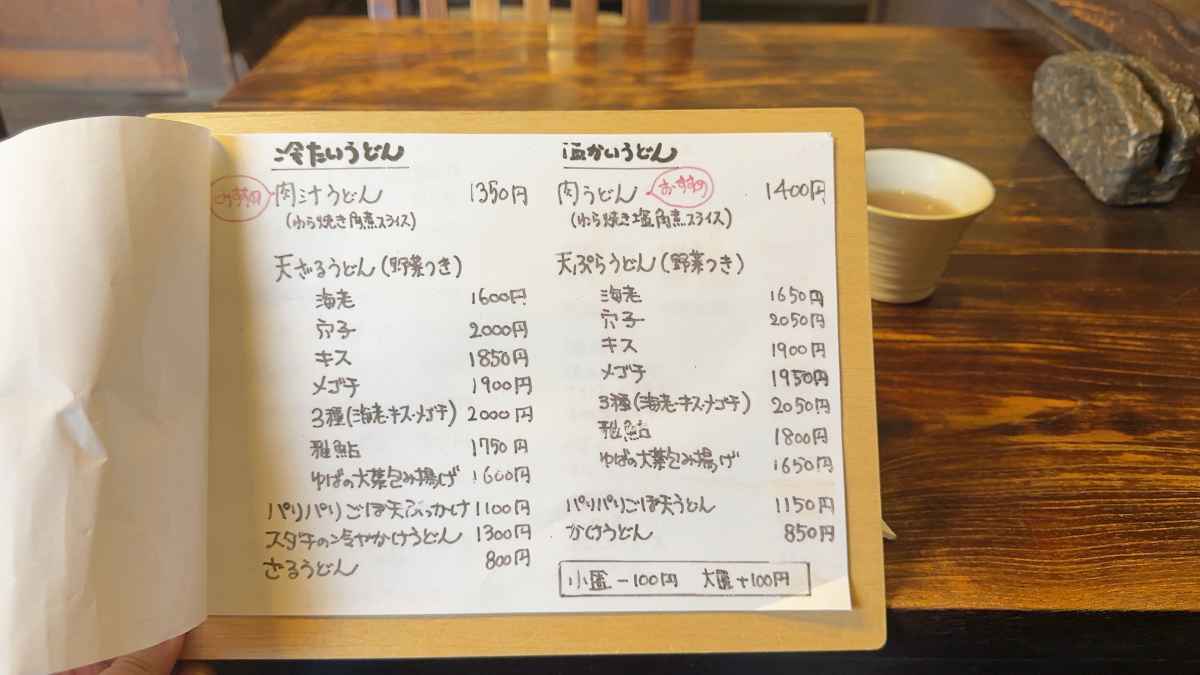 冷たいうどん
おすすめ 肉汁うどん 1350円
(わら焼き角煮スライス)
天ざるうどん(野菜つき)
海老 1600円
穴子 2000円
キス 1850円
メゴチ 1900円
3種(海老・キス・メゴチ) 2000円
稚鮎 1750円
ゆばの大葉包み揚げ 1600円
パリパリごぼ天ぶっかけ 1100円
スダチの冷やかけうどん 1300円
ざるうどん 800円
温かいうどん
肉うどん おすすめ 1400円
(わら焼き塩角煮スライス)
天ぷらうどん(野菜つき)
海老 1650円
穴子 2050円
キス 1900円
メゴチ 1950円
3種(海老・キス・メゴチ) 2050円
稚鮎 1800円
ゆばの大葉包み揚げ 1650円
パリパリごぼ天うどん 1150円
かけうどん 850円
小盛 -100円 大盛 +100円